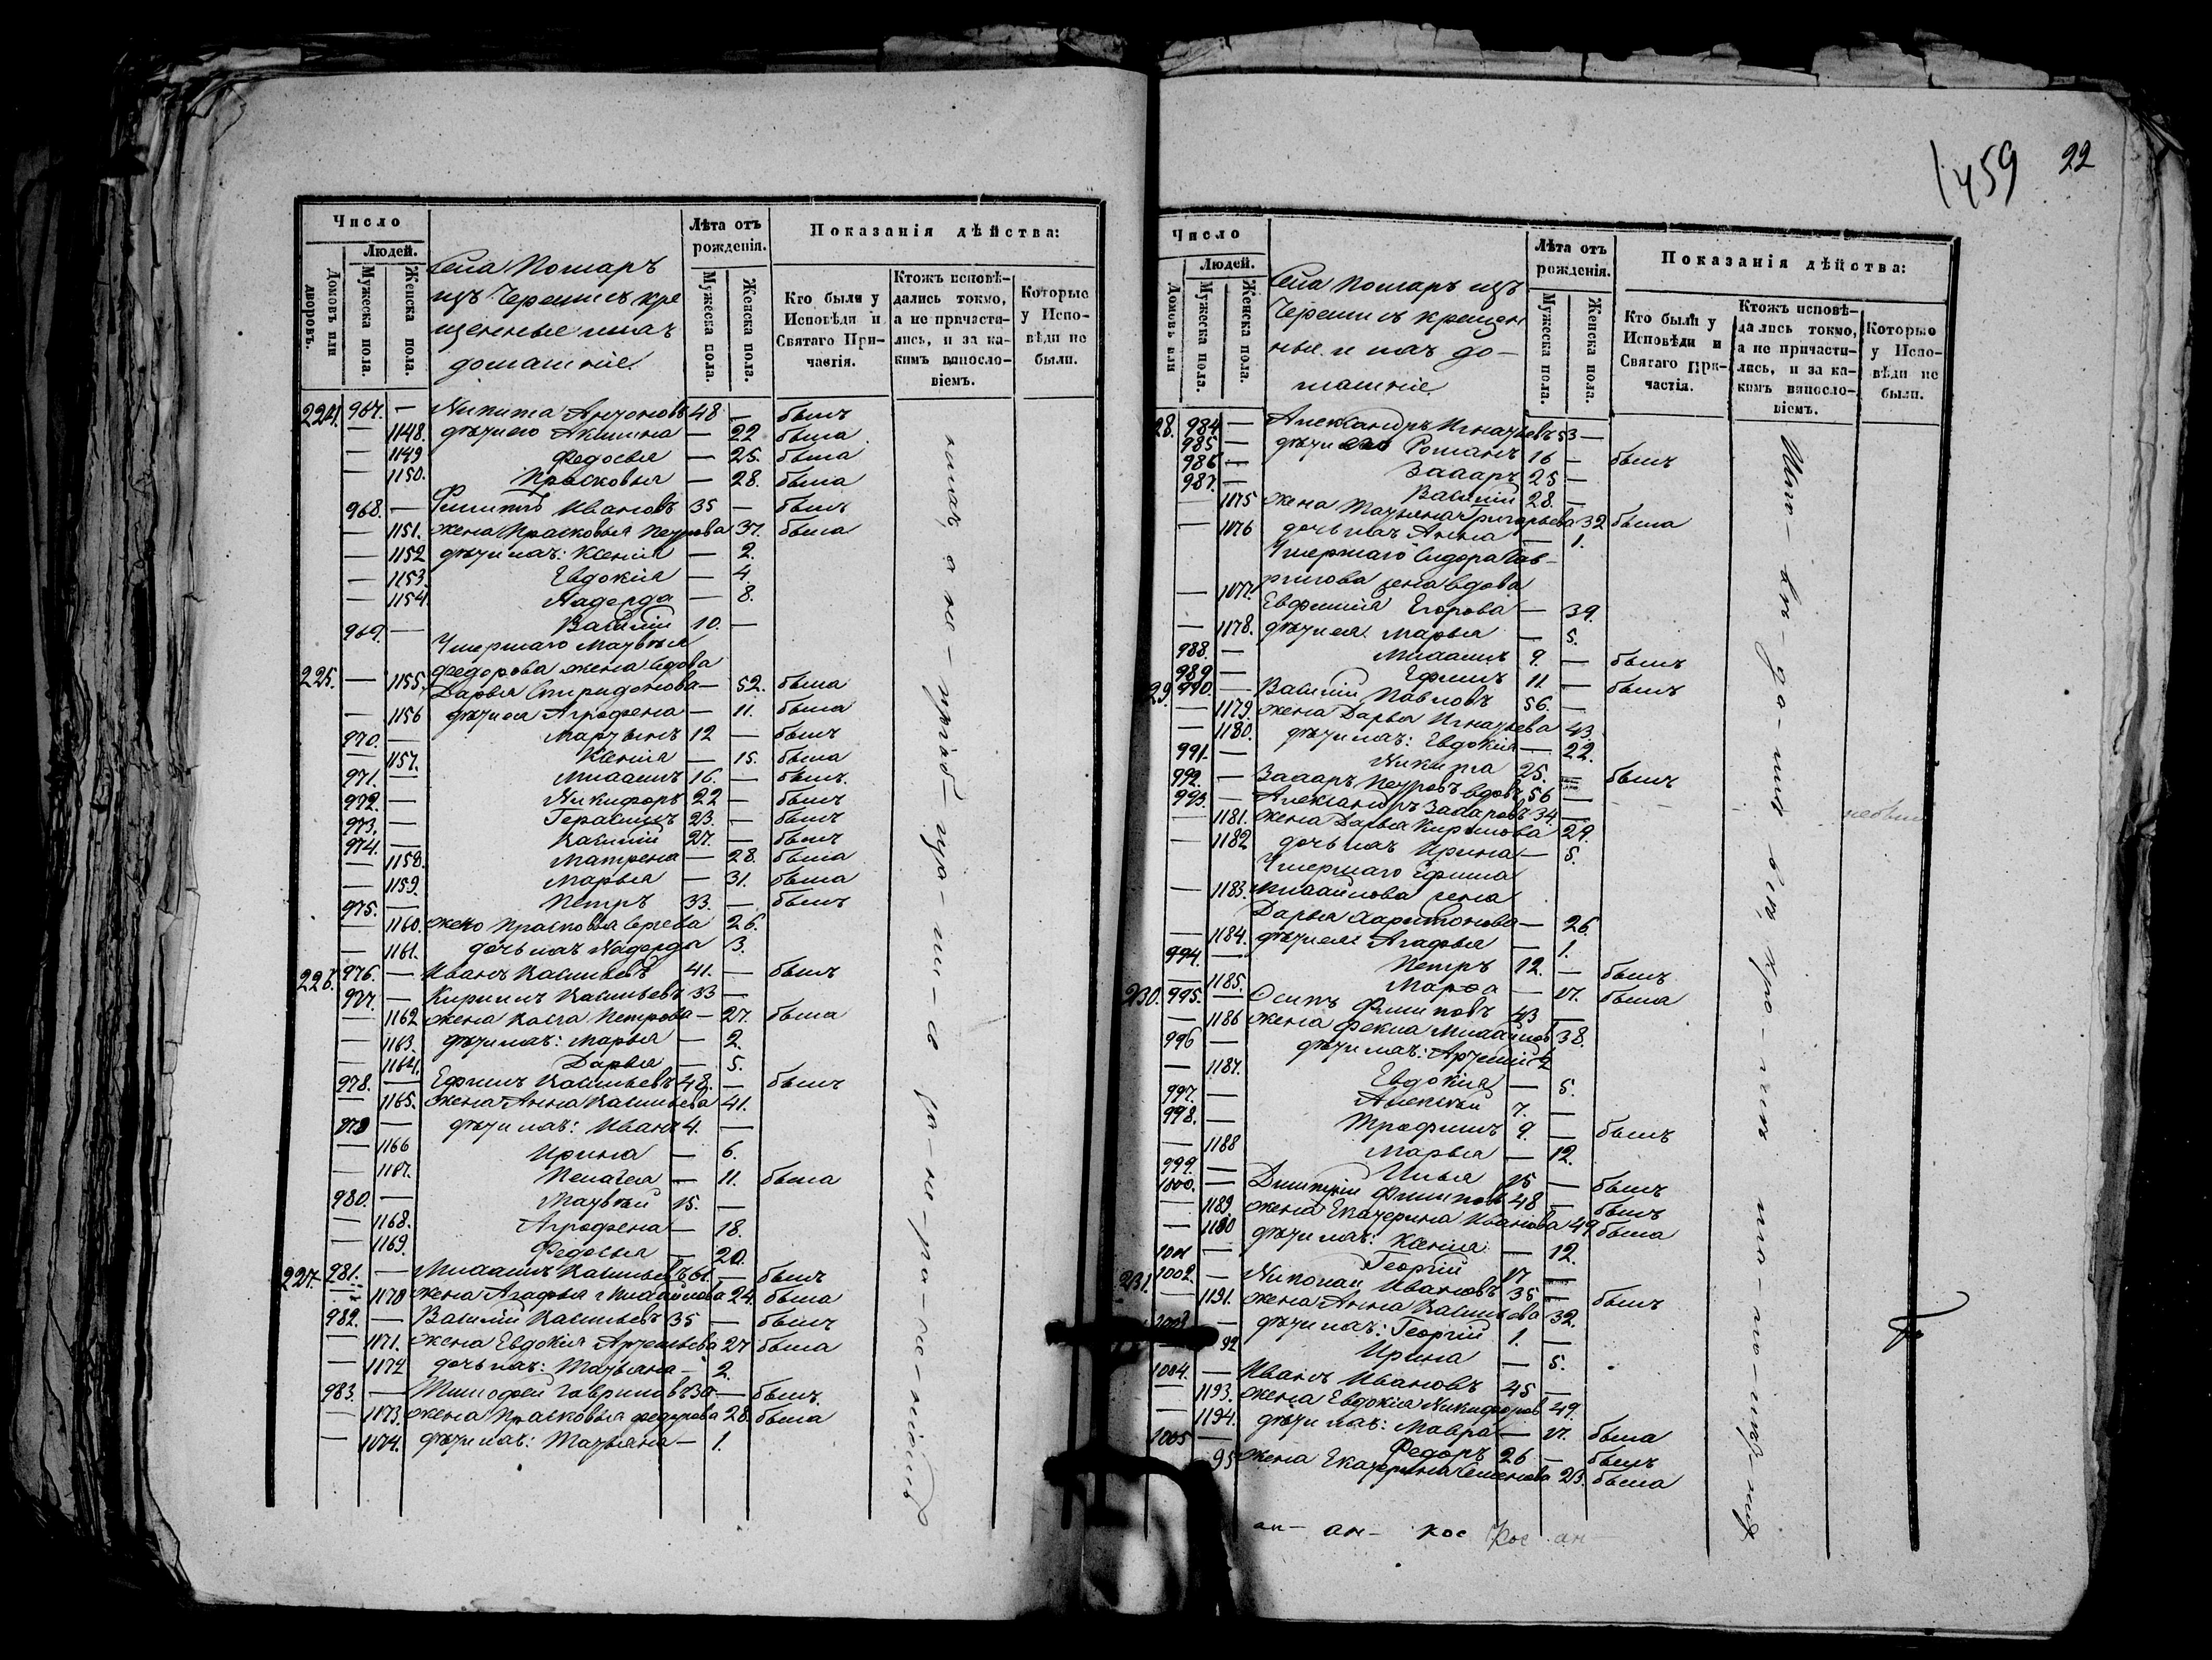 Число
Людей.
Домовъ или дворовъ.
Мужеска пола.
Женска пола.
Села
изъ Черемисъ кре
щенные и ихъ
домашніе.
Лѣта отъ рожденія.
Мужеска пола.
Женска пола.
Показанія дѣйства:
Кто были у Исповѣди и Святаго Причастія.
Ктожъ исповѣдались токмо, а не причастились, и за какимъ винословіемъ.
Которые у Исповѣди не были.
224. 967. — Никита Антоновъ 48 — былъ
— 1148. дѣти его Акилина — 22 была
— 1149 Федосья — 25. была
— 1150. Прасковья — 28. была
968. — Филиппъ Ивановъ 35 — былъ
— 1151. жена Прасковья Петрова 37. была
— 1152 дѣти ихъ: Ксенія — 2.
— 1153. Евдокія — 4.
— 1154. Надежда — 8.
969. — Василій 10. —
Умершаго Матвѣя
Федорова жена вдова
225. — 1155. Дарья Спиридонова — 52. была
— 1156 дѣти ея Агрофена — 11. была
970. — Мартынъ 12 — былъ
— 1157. Ксенія — 15. была
971. — Михаилъ 16. — былъ.
972. — Никифоръ 22 — былъ
973. — Герасимъ 23. — былъ
974. — Василій 27. — былъ
— 1158. Матрена — 28. была
— 1159. Марья — 31. была
975. — Петръ 33. — былъ
— 1160. жена Прасковья Сергева 26.
— 1161. дочь ихъ Надежда 3.
226. 976. — Иванъ Васильевъ 41. — былъ
977. — Кириллъ Васильевъ 33 —
— 1162 жена Васса Петрова — 27. была
— 1163. дѣти ихъ: Марья — 2.
— 1164. Дарья — 5.
978. — Ефимъ Васильевъ 48. — былъ
— 1165. жена Анна Васильева 41.
979 — дѣти ихъ: Иванъ 4. —
— 1166 Ирина — 6.
— 1167. Пелагея — 11. была
980. — Матвѣй 15. —
— 1168. Агрофена — 18.
— 1169. Федосья — 20.
227. 981. — Михаилъ Васильевъ 61. — былъ
— 1170 жена Агафья Михайлова 24. была
982. — Василій Васильевъ 35 — былъ
— 1171. жена Евдокія Артемьева 27 была
— 1172 дочь ихъ: Татьяна — 2.
983. — Тимофей Гавриловъ 30 — былъ.
— 1173. жена Прасковья Федорова 28. была
— 1074. дѣти ихъ: Татьяна — 1.
1459 22
Число
Людей.
Домовъ или
Мужеска пола.
Женска пола.
Села
изъ
Черемисъ крещен
ные и ихъ до-
машніе
Лѣта отъ рожденія.
Мужеска пола.
Женска пола.
Показанія дѣйства:
Кто были у Исповѣди и Святаго Причастія.
Ктожъ исповѣдались токмо, а не причастились, и за какимъ винословіемъ.
Которые у Исповѣди не были.
28. 984 — Александръ Игнатьевъ 53 —
985 — дѣти его Романъ 16 — былъ
986 — Захаръ 25 —
987. — Василій 28. —
— 1075 жена Татьяна Григорьева 32 была
— 1076 дочь ихъ Анна — 1.
Умершаго Сидора Гав-
рилова жена вдова
— 1077. Евфимія Егорова — 39.
— 1178. дѣти ея Марья — 5.
988. — Михаилъ 9. — былъ
989 — Ефимъ 11 — былъ
29. 990. — Василій Павловъ 56. —
— 1179. жена Дарья Игнатьева 43.
— 1180. дѣти ихъ: Евдокія — 22.
991. — Никита 25. — былъ
992. — Захаръ Петровъ вдовъ 56 —
993. — Александръ Захаровъ 34. —
— 1181. жена Дарья Кирилова 29.
— 1182 дочь ихъ Ирина — 5.
Умершаго Ефима
— 1183. Михайлова жена
Дарья Харитонова — 26.
— 1184. дѣти ея Агафья — 1.
994. — Петръ 12. — былъ
— 1185. Марфа — 17. была
230. 995. — Осипъ Филиповъ 43 —
— 1186 жена Фекла Михайлов 38.
996 — дѣти ихъ: Артемій 2
— 1187. Евдокія — 5.
997. — Алексѣй 7. —
998. — Трофимъ 9. — былъ
— 1188 Марья — 12.
999. — Илья 15 — былъ
1000. — Дмитрій Филиповъ 48 — былъ
— 1189. жена Екатерина Иванова 49. была
— 1180 дѣти ихъ: Ксенія — 12.
1001 — Георгій 17 —
231. 1002. — Николай Ивановъ 35 — былъ
— 1191. жена Анна Васильева 32.
1003 — дѣти ихъ: Георгій 1. —
92 Ирина — 5.
1004. — Иванъ Ивановъ 45 —
— 1193. жена Евдокія Никифоров 49.
— 1194. дѣти ихъ: Мавра — 17. была
1005 — Федоръ 26 — былъ
95 жена Екатерина Семенова 23. была
ан- ан- кос кос ан